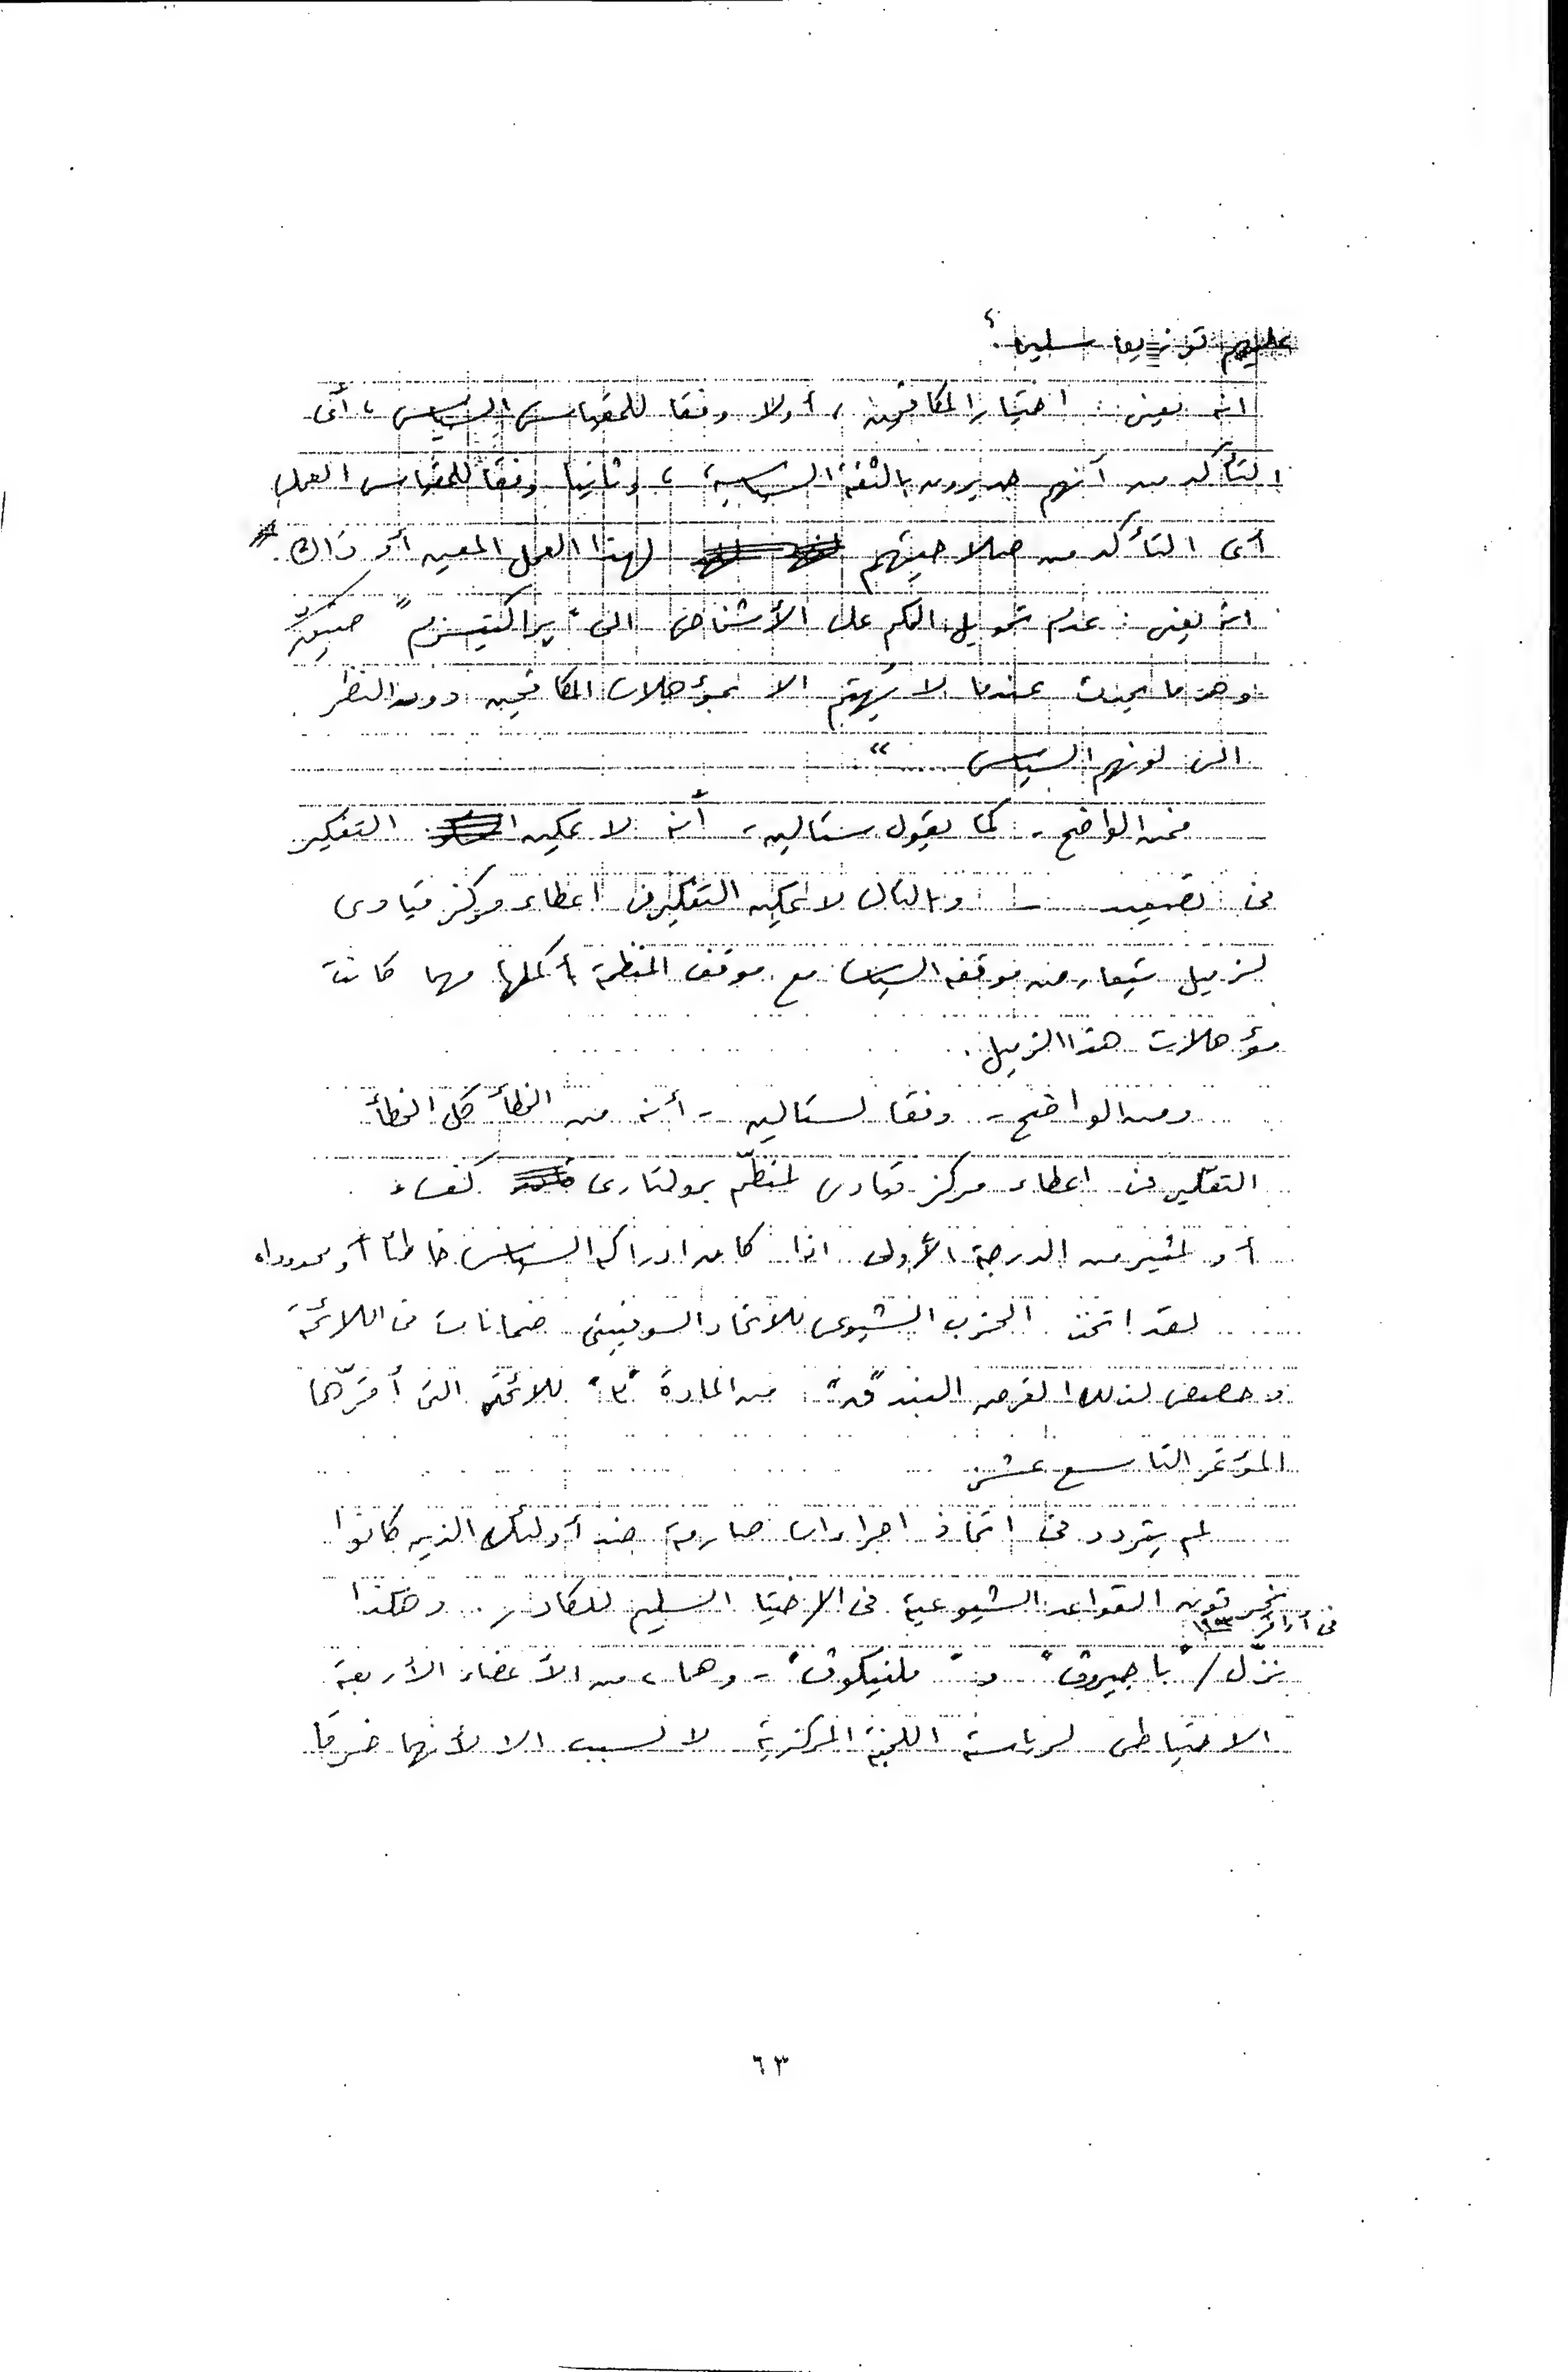 عليهم توزيعا سليما ؟
انه يعنى : اختيار المكافحين ، أولا وفقا للمقياس السياسى ، أى
التأكد من أنهم جديرون بالثقة السياسية ، وثانيا وفقا للمقياس العملى
أى التأكد من صلاحيتهم لهذا العمل المعين أو ذاك .
انه يعنى : عدم تحويل الحكم على الأشخاص الى " براكتيسزم " ضيقة
وهو ما يحدث عندما لا يُهتم الا بمؤهلات المكافحين دون النظر
الى لونهم السياسى .... "
فمن الواضح - كما يقول ستالين - أنه لا يمكن التفكير
فى تصعيد - وبالتالى لا يمكن التفكير فى اعطاء مركز قيادى
لزميل يتعارض موقفه السياسى مع موقف المنظمة بأكملها مهما كانت
مؤهلات هذا الزميل .
ومن الواضح - وفقا لستالين - أنه من الخطأ كل الخطأ
التفكير فى اعطاء مركز قيادى لمنظّم بروليتارى كفء
أو لمثير من الدرجة الأولى اذا كان ادراكه السياسى خاطئا أو محدودا
لقد اتخذ الحزب الشيوعى للاتحاد السوفييتى ضمانات فى اللائحة
وخصص لذلك الغرض البند من المادة "٣" للائحة التى أقرّها
المؤتمر التاسع عشر
لم يتردد فى اتخاذ اجراءات صارمة ضد أولئك الذين كانوا
يخرقون القواعد الشيوعية فى الاختيا السليم للكادر . وهكذا
فى أوائل ١٩٥٣
نزّل / " باجيروق " و " ملنيكوق " - وهما ، من الأعضاء الأربعة
الاحتياطى لرئاسة اللجنة المركزية لا لسبب الا لأنهما خرقا
٦٣